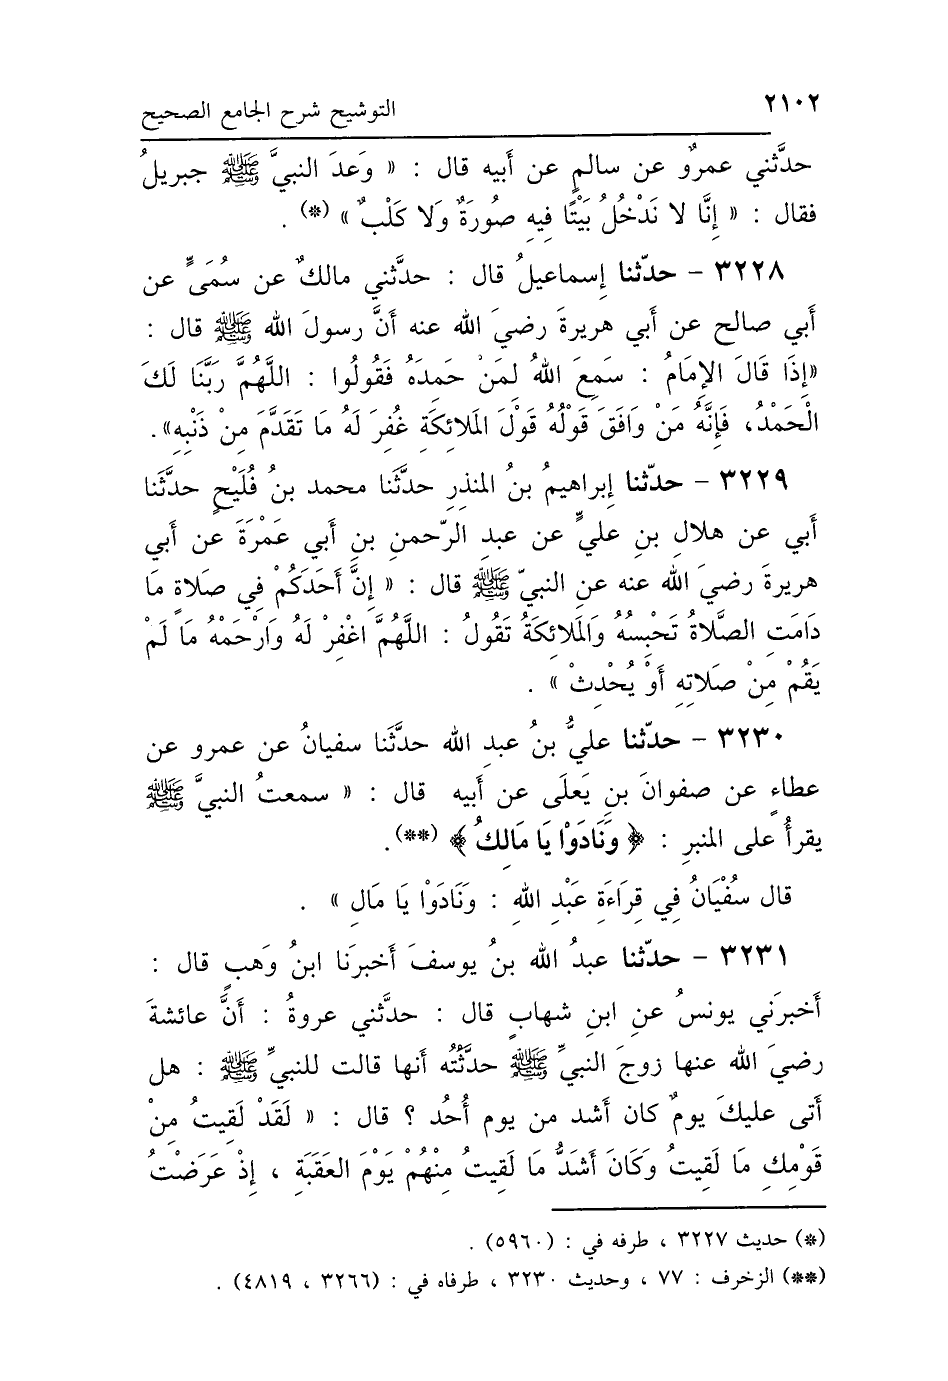 ٢١٠٢ التوشيح شرح الجامع الصحيح
حدَّثني عمرٌو عن سالمٍ عن أَبيه قال : « وَعدَ النبيَّ ﷺ جبريلُ
فقال : « إِنَّا لا نَدْخُلُ بَيْتًا فِيهِ صُورَةٌ وَلا كَلْبٌ » (*) .
٣٢٢٨ - حدّثنا إسماعيلُ قال : حدَّثني مالكٌ عن سُمَىٍّ عن
أَبي صالح عن أَبي هريرةَ رضيَ الله عنه أَنَّ رسولَ الله ﷺ قال :
«إِذَا قَالَ الإِمَامُ : سَمِعَ اللهُ لِمَنْ حَمِدَهُ فَقُولُوا : اللَّهُمَّ رَبَّنَا لَكَ
الْحَمْدُ، فَإِنَّهُ مَنْ وَافَقَ قَوْلُهُ قَوْلَ المَلائِكَةِ غُفِرَ لَهُ مَا تَقَدَّمَ مِنْ ذَنْبِهِ».
٣٢٢٩ - حدّثنا إبراهيمُ بنُ المنذرِ حدَّثَنا محمد بنُ فُلَيْحٍ حدَّثَنا
أَبي عن هلالِ بنِ عليٍّ عن عبدِ الرّحمنِ بنِ أَبي عَمْرَةَ عن أَبي
هريرةَ رضيَ الله عنه عنِ النبيّ ﷺ قال : « إِنَّ أَحَدَكُمْ فِي صَلاةٍ مَا
دَامَتِ الصَّلاةُ تَحْبِسُهُ وَالمَلائِكَةُ تَقُولُ : اللَّهُمَّ اغْفِرْ لَهُ وَارْحَمْهُ مَا لَمْ
يَقُمْ مِنْ صَلاتِهِ أَوْ يُحْدِثْ » .
٣٢٣٠ - حدّثنا عليُّ بنُ عبدِ الله حدَّثَنا سفيانُ عن عمرو عن
عطاءٍ عن صفوانَ بنِ يَعلَى عن أَبيه قال : « سمعتُ النبيَّ ﷺ
يقرأُ على المنبرِ : ﴿ وَنَادَوْا يَا مَالِكُ ﴾ (**).
قال سُفْيَانُ فِي قِرَاءَةِ عَبْدِ اللهِ : وَنَادَوْا يَا مَالِ » .
٣٢٣١ - حدّثنا عبدُ الله بنُ يوسفَ أَخبرَنا ابنُ وَهبٍ قال :
أَخبرَني يونسُ عنِ ابنِ شهابٍ قال : حدَّثني عروةُ : أَنَّ عائشةَ
رضيَ الله عنها زوجَ النبيِّ ﷺ حدَّثَتْه أنها قالت للنبيِّ ﷺ : هل
أَتى عليكَ يومٌ كان أشد من يوم أُحُد ؟ قال : « لَقَدْ لَقِيتُ مِنْ
قَوْمِكِ مَا لَقِيتُ وَكَانَ أَشَدُّ مَا لَقِيتُ مِنْهُمْ يَوْمَ العَقَبَةِ ، إِذْ عَرَضْتُ
(*) حديث ٣٢٢٧ ، طرفه في : (٥٩٦٠) .
(**) الزخرف : ٧٧ ، وحديث ٣٢٣٠ ، طرفاه في : (٣٢٦٦ ، ٤٨١٩) .